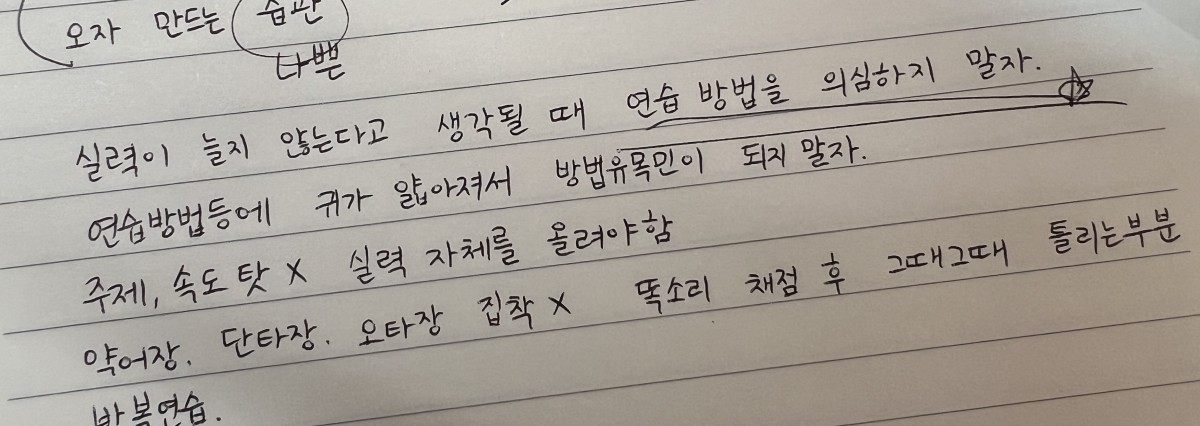 오자 만드는 습관
나쁜
실력이 늘지 않는다고 생각될 때 연습 방법을 의심하지 말자.
연습방법등에 귀가 얇아져서 방법유목민이 되지 말자.
주제, 속도 탓 X 실력 자체를 올려야함
약어장. 단타장. 오타장 집착 X 똑소리 채점 후 그때그때 틀리는부분
반복연습.